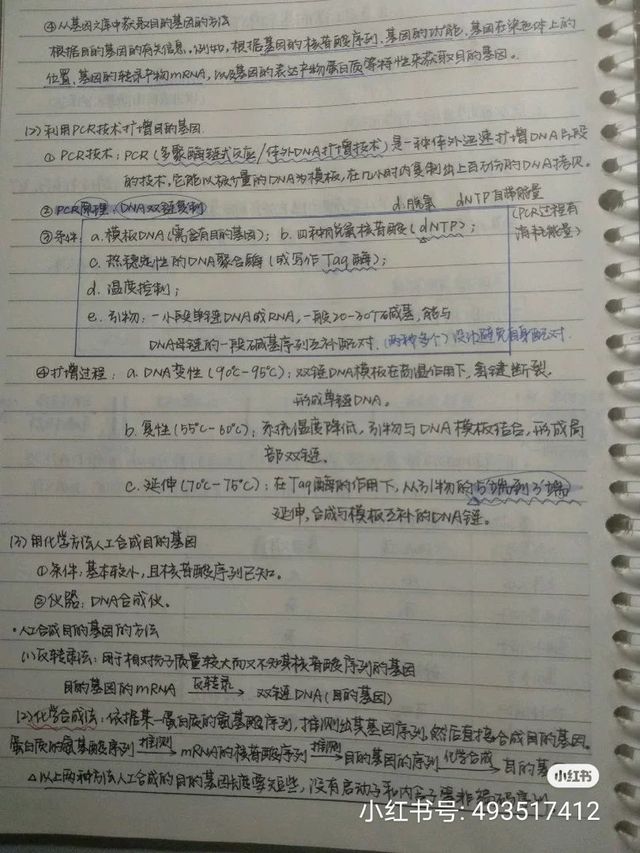 ④从基因文库中获取目的基因的方法
根据目的基因的有关信息,例如,根据基因的核苷酸序列、基因的功能、基因在染色体上的
位置、基因的转录产物mRNA,以及基因的表达产物蛋白质等特性来获取目的基因。
(2)利用PCR技术扩增目的基因
①PCR技术:PCR(多聚酶链式反应/体外DNA扩增技术)是一种体外迅速扩增DNA片段
的技术,它能以极少量的DNA为模板,在几小时内复制出上百万份的DNA拷贝。
②PCR原理:DNA双链复制
d.脱氧 dNTP自带能量
(PCR过程有
消耗能量)
③条件:a.模板DNA(需含有目的基因);b.四种脱氧核苷酸(dNTP);
c.热稳定性的DNA聚合酶(或写作Taq酶);
d.温度控制;
e.引物:一小段单链DNA或RNA,一般20-30个碱基,能与
DNA母链的一段碱基序列互补配对.(两种多个)设计避免自身配对.
④扩增过程:a.DNA变性(90℃-95℃):双链DNA模板在高温作用下,氢键断裂.
形成单链DNA。
b.复性(55℃-60℃):系统温度降低,引物与DNA模板结合,形成局
部双链。
c.延伸(70℃-75℃):在Taq酶的作用下,从引物的5'端到3'端
延伸,合成与模板互补的DNA链。
(3)用化学方法人工合成目的基因
①条件:基本较小,且核苷酸序列已知。
②仪器:DNA合成仪。
·人工合成目的基因的方法
(1)反转录法:用于相对分子质量较大而又不知其核苷酸序列的基因
目的基因的mRNA 反转录→ 双链DNA(目的基因)
(2)化学合成法:依据某一蛋白质的氨基酸序列,推测出其基因序列,然后直接合成目的基因。
蛋白质的氨基酸序列 推测→ mRNA的核苷酸序列 推测→ 目的基因的序列 化学合成→ 目的基
△以上两种方法人工合成的目的基因长度要短些,没有启动子和内含子等非编码序列
小红书
小红书号: 493517412